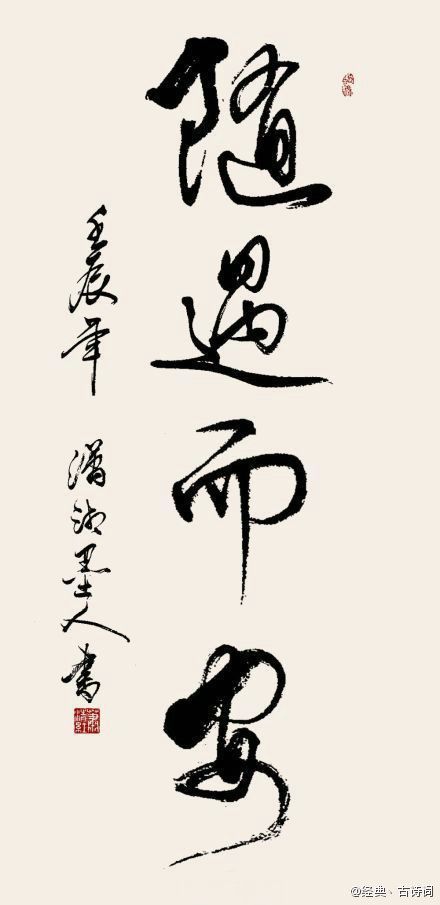 随遇而安
壬辰年 瀟湘墨人書
@经典、古诗词